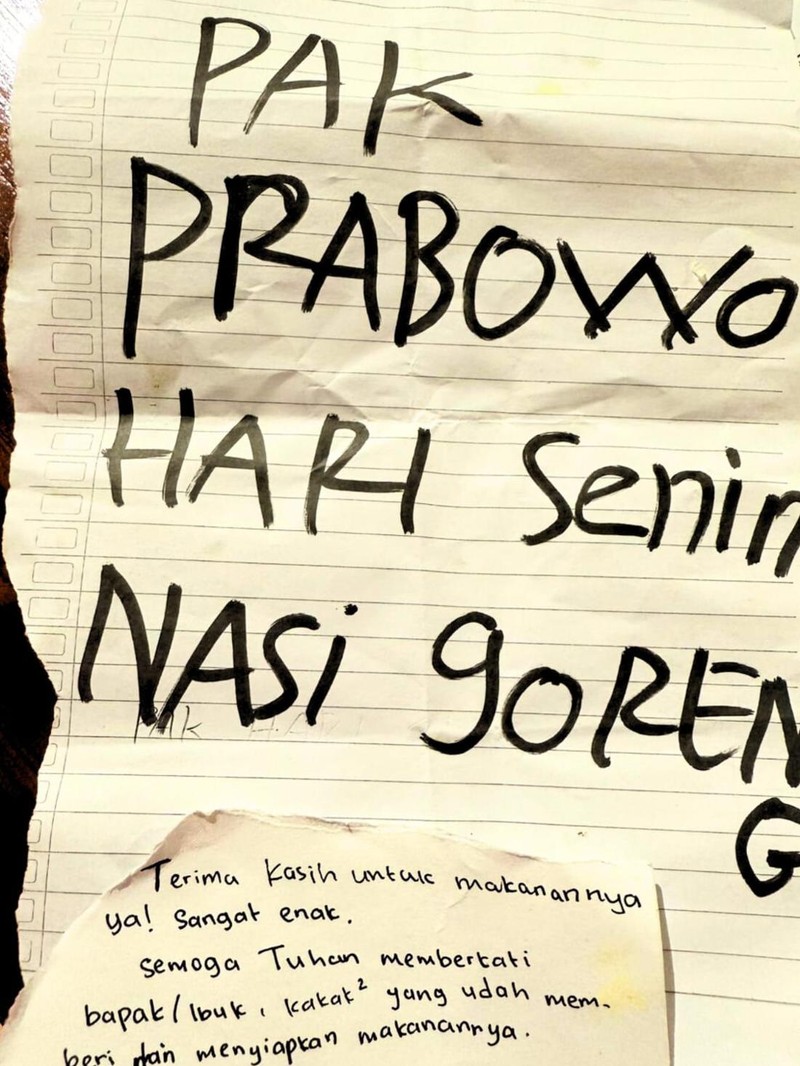 PAK
PRABOWO
HARI Senin
NASi goREN
G
Terima kasih untuk makanannya
ya! Sangat enak.
semoga Tuhan memberkati
bapak/Ibuk, kakak² yang udah mem-
beri dan menyiapkan makanannya.